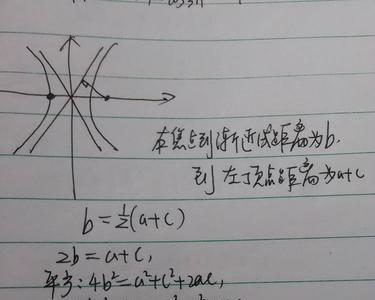 右焦点到渐近线距离为b.
到左顶点距离为a+c
b=½(a+c)
2b=a+c,
平方:4b²=a²+c²+2ac,